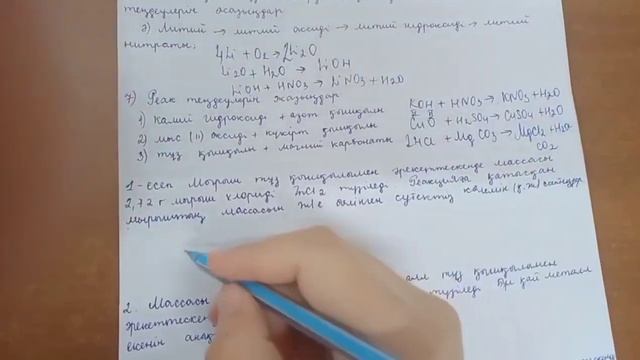 теңдеулерін жазыңдар
2) Литий → литий оксиді → литий гидроксиді → литий
нитраты;
4Li + O2 → 2Li2O
Li2O + H2O → LiOH
LiOH + HNO3 → LiNO3 + H2O
7) Реак теңдеулерін жазыңдар
1) калий гидроксиді + азот қышқылы KOH + HNO3 → KNO3 + H2O
2) мыс (II) оксиді + күкірт қышқылы CuO + H2SO4 → CuSO4 + H2O
3) тұз қышқылы + магний карбонаты 2HCl + MgCO3 → MgCl2 + H2O
CO2
1-есеп Мырыш тұз қышқылымен әрекеттескенде массасы
2,72 г мырыш хлориді ZnCl2 түзіледі. Реакцияға қатысқан
мырыштың массасын және бөлінген сутектің көлемін (қ.ж)
2. Массасы тұз қышқылымен
әрекеттескен түзіледі. Бұл қай металл
екенін